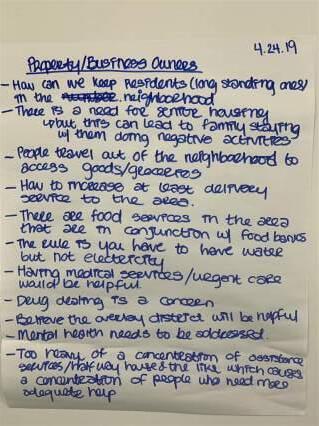 4.24.19
Property/Business Owners
- How can we keep Residents (long standing ones)
in the neighborhood
- There is a need for senior housing
but this can lead to family staying
w/ them doing negative activities
- People travel out of the neighborhood to
access goods/groceries
- How to increase at least delivery
service to the area.
- There are food services in the area
that are in conjunction w/ food banks
- The rule is you have to have water
but not electricity
- Having medical services/urgent care
would be helpful
- Drug dealing is a concern
- Believe the overlay district will be helpful
- Mental health needs to be addressed.
- Too heavy of a concentration of assistance
services/half way houses & the like which causes
a concentration of people who need more
adequate help